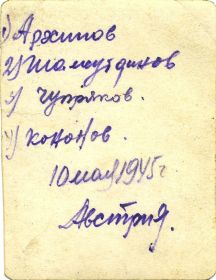 1) Архипов
2) Шамсутдинов
3) Чупряков.
4) Кононов.
10 мая 1945 г
Австрия.